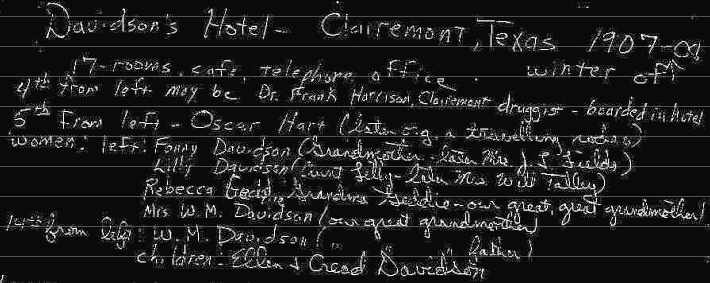 Davidson's Hotel - Clairemont, Texas 1907-08
17-rooms, cafe, telephone office. winter of
4th from left may be Dr. Frank Harrison, Clairemont druggist - boarded in hotel
5th from left - Oscar Hart (later a travelling
women: left: Fanny Davidson (Grandmother - later Mrs. J. L. Fields)
Lilly Davidson (Aunt Lilly - later Mrs Will Talley)
Rebecca Grandma - our great, great grandmother)
Mrs W. M. Davidson (our great grandmother)
from left: W. M. Davidson ( " " " father)
children: Ellen & Creed Davidson